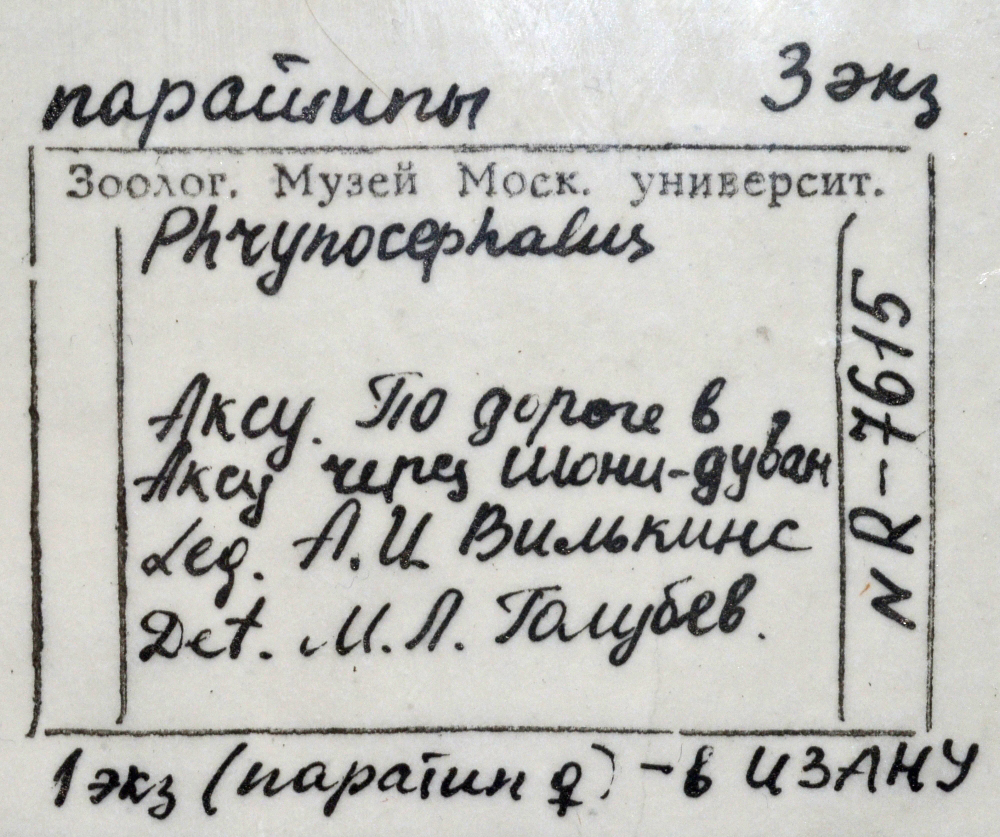 паратипы 3 экз
Зоолог. Музей Моск. университ.
Phrynocephalus
Аксу. По дороге в
Аксу через Шони-дуван
Leg. А.И Вилькинс
Det. М.Л. Голубев.
N R-7615
1 экз (паратип ♀) - в ИЗАНУ